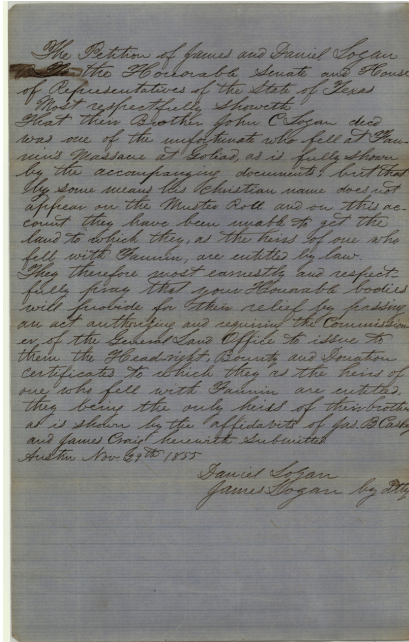 The Petition of James and Daniel Logan
to the Honorable Senate and House
of Representatives of the State of Texas
Most respectfully Showeth
That their Brother John C Logan decd
was one of the unfortunate who fell at Fan-
nin's Massacre at Goliad, as is fully shown
by the accompanying documents, but that
by some means his Christian name does not
appear on the Muster Roll and on this ac-
count they have been unable to get the
land to which they, as the heirs of one who
fell with Fannin, are entitled by law.
They therefore most earnestly and respect-
fully pray that your Honorable bodies
will provide for their relief by passing
an act authorizing and requiring the Commission
er of the General Land Office to issue to
them the Headright, Bounty and Donation
certificates to which they as the heirs of
one who fell with Fannin are entitled.
they being the only heirs of their brother
as is shown by the affidavits of Jas. B
and James Craig herewith submitted
Austin Nov. 1855
Daniel Logan
James Logan by Atty